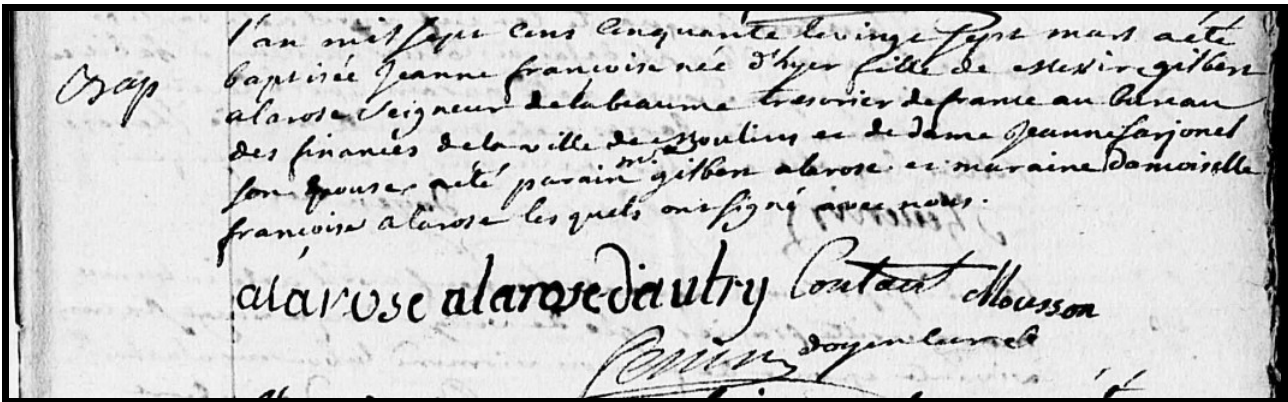 Bap
l'an mil sept cens cinquante le vingt sept mars a été
baptisée Jeanne françoise née d'hyer fille de Messire gilbert
alarose seigneur de labeaume tresorier de france au bureau
des finances de la ville de Moulins et de dame Jeanne farjonel
son epouse, a été parain mr. gilbert alarose et maraine damoiselle
françoise alarose lesquels ont signé avec nous.
alarose alarose d'autry Coutant Mousson
doyen curé